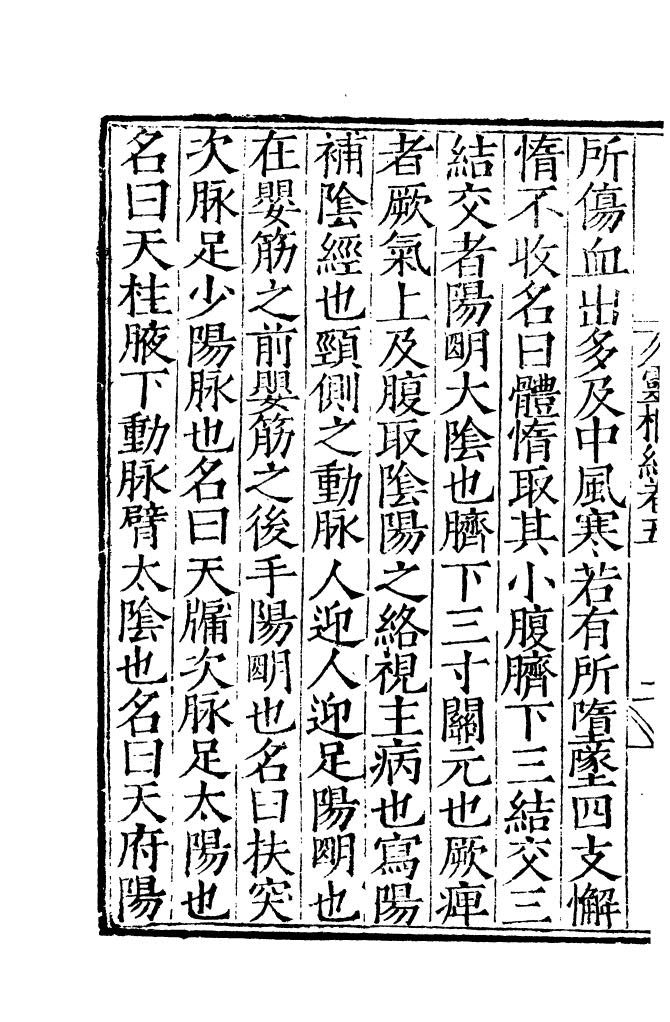 所傷血出多及中風寒若有所墮墜四支懈
惰不收名曰體惰取其小腹臍下三結交三
結交者陽明大陰也臍下三寸關元也厥痺
者厥氣上及腹取陰陽之絡視主病也寫陽
補陰經也頸側之動脉人迎人迎足陽明也
在嬰筋之前嬰筋之後手陽明也名曰扶突
次脉足少陽脉也名曰天牖次脉足太陽也
名曰天柱腋下動脉臂太陰也名曰天府陽